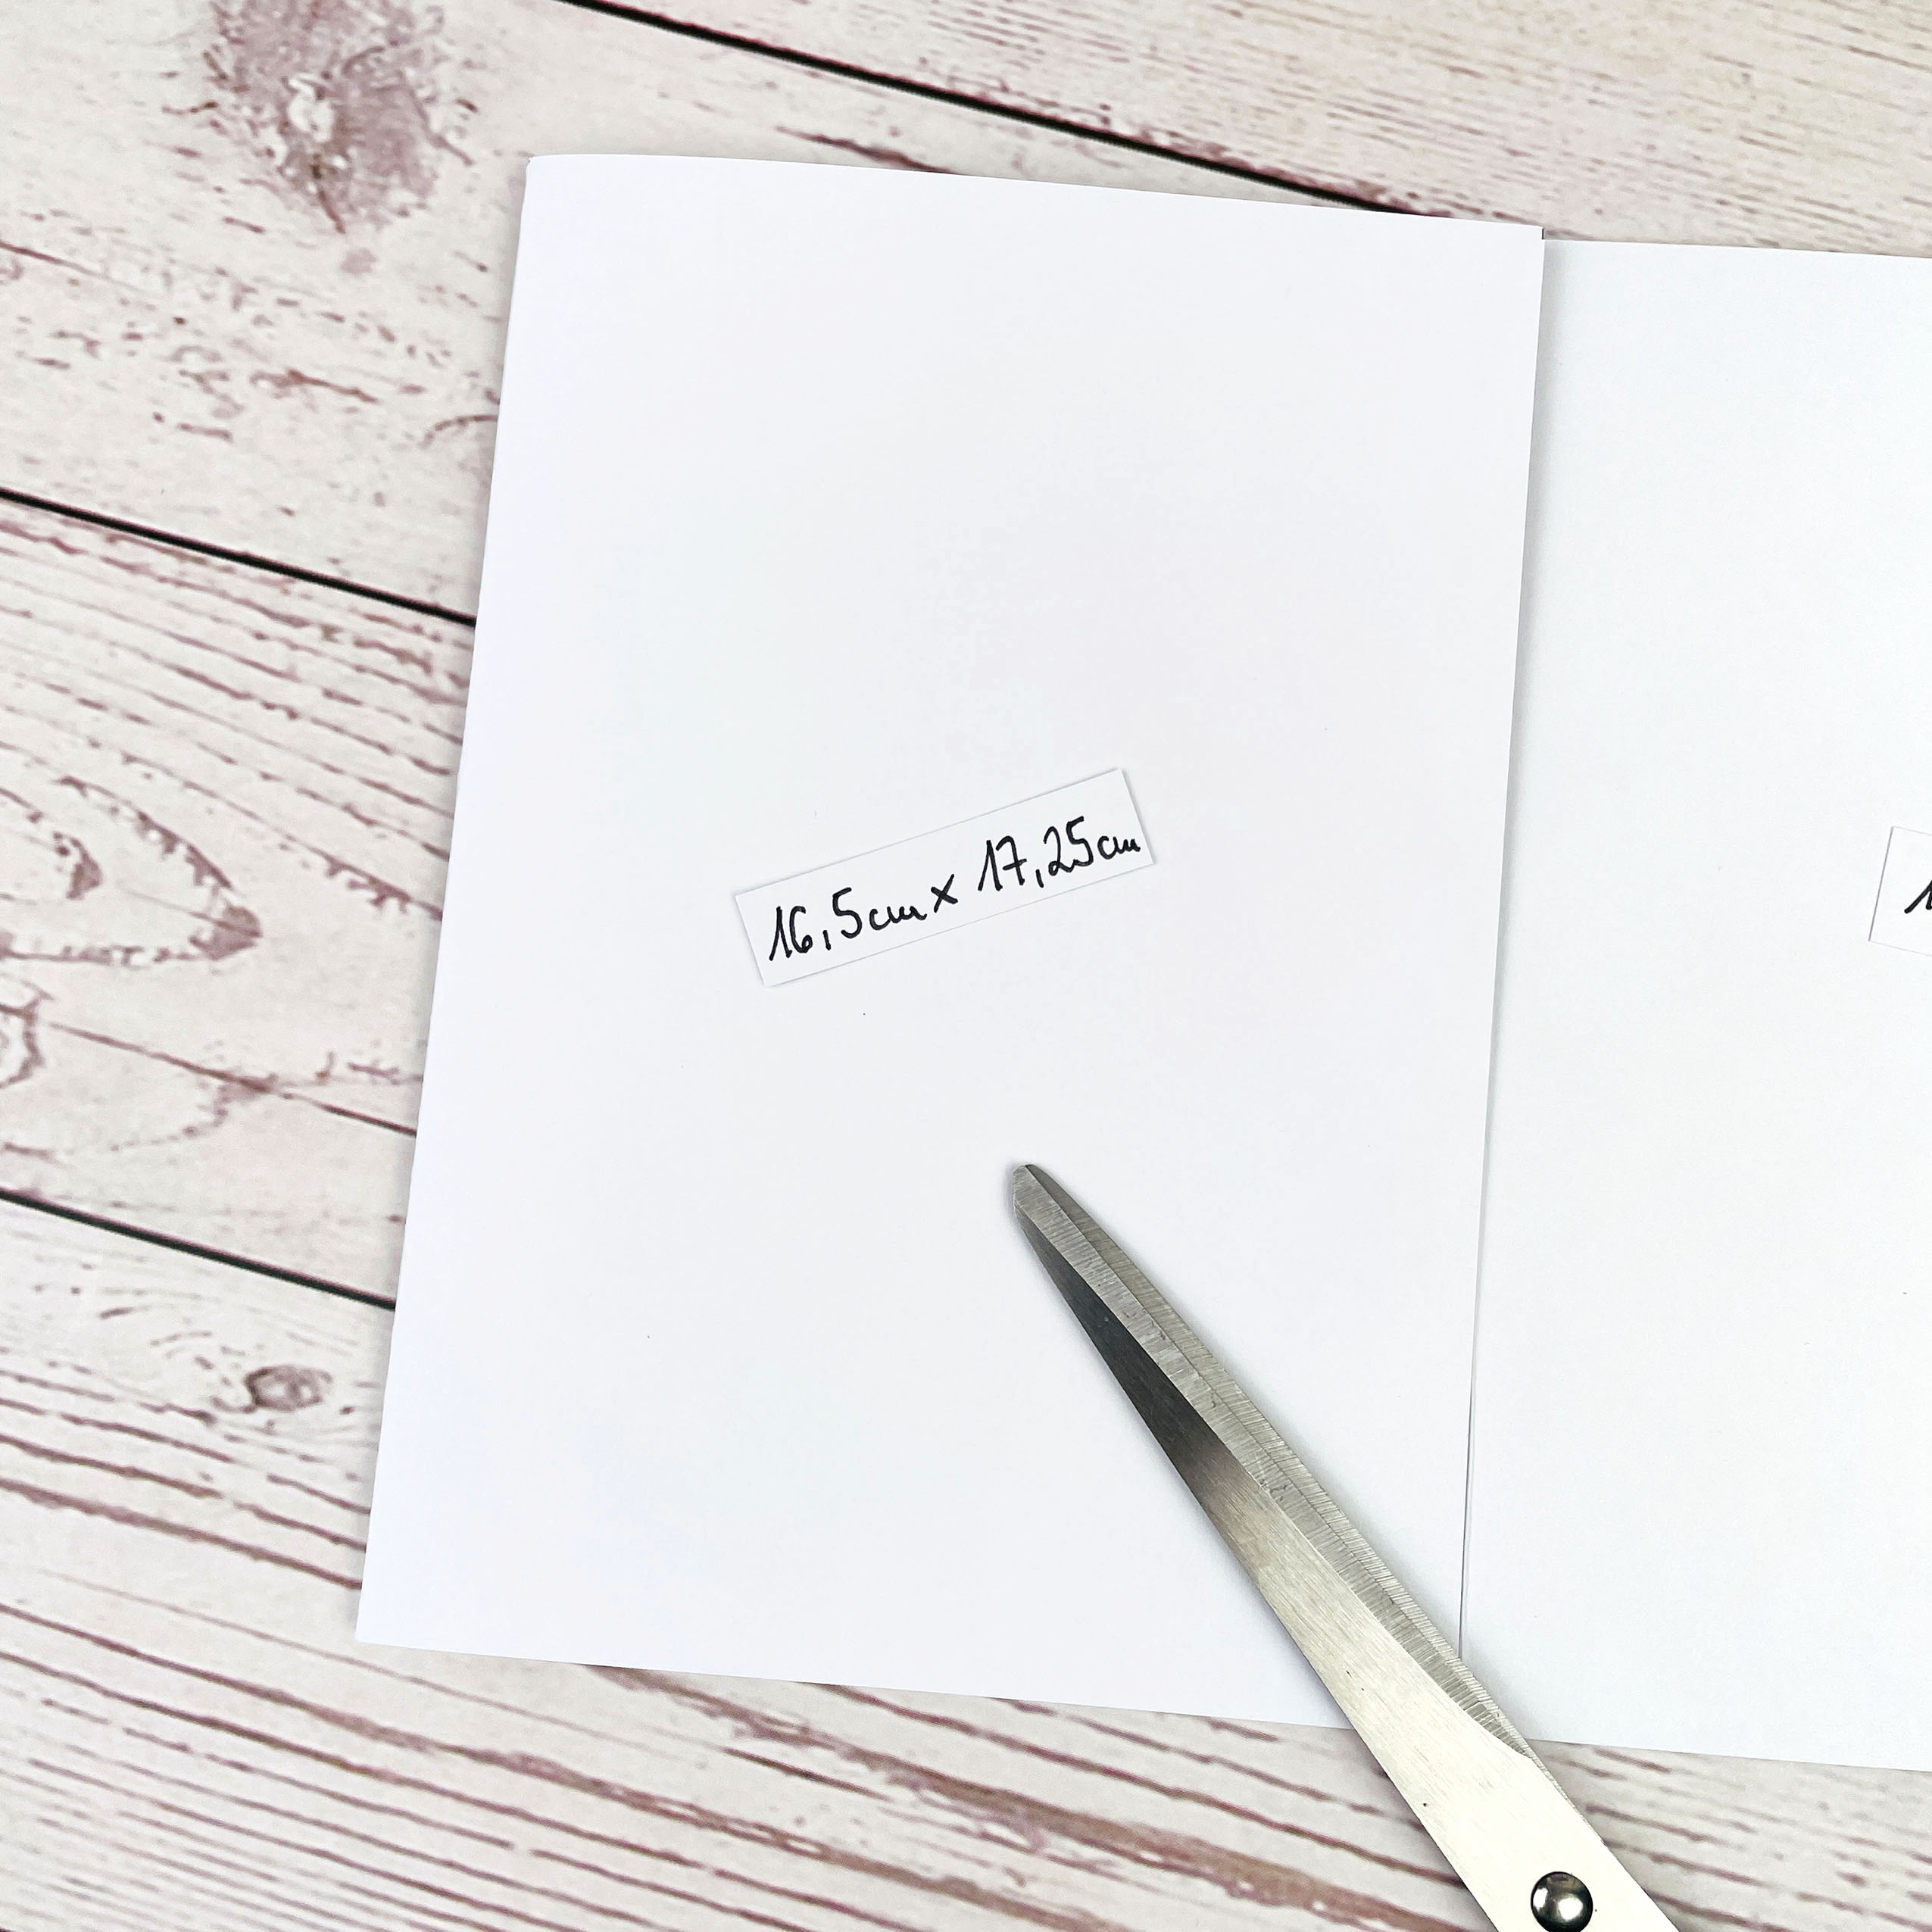 16,5cm x 17,25cm